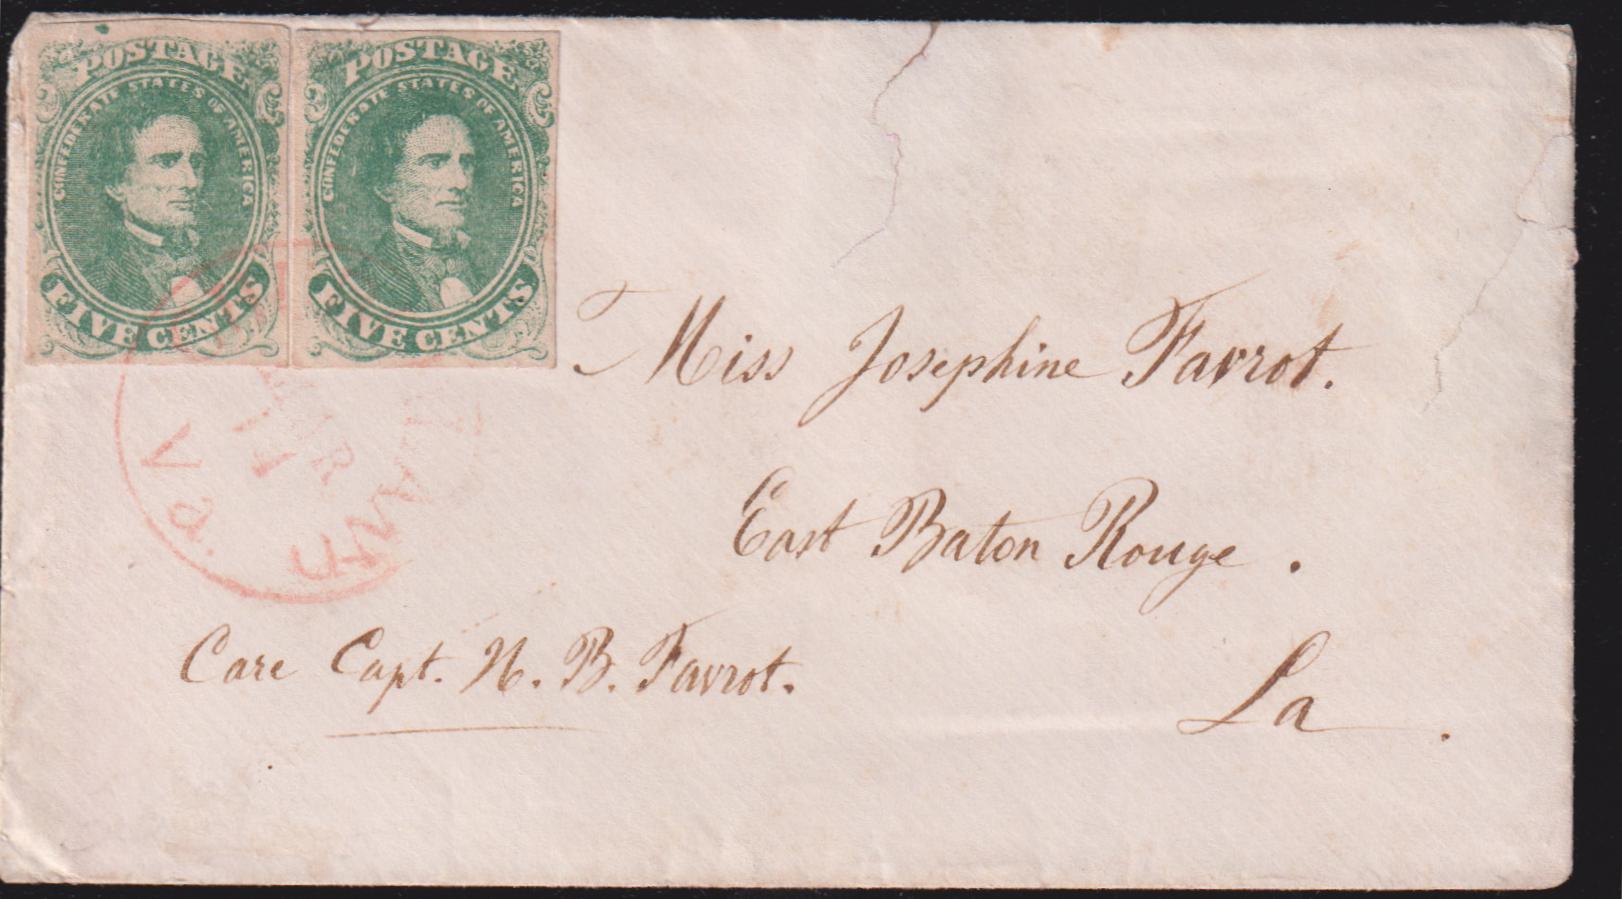 POSTAGE
CONFEDERATE STATES OF AMERICA
FIVE CENTS
POSTAGE
CONFEDERATE STATES OF AMERICA
FIVE CENTS
MAR
Va.
Miss Josephine Favrot.
East Baton Rouge.
La.
Care Capt. H. B. Favrot.